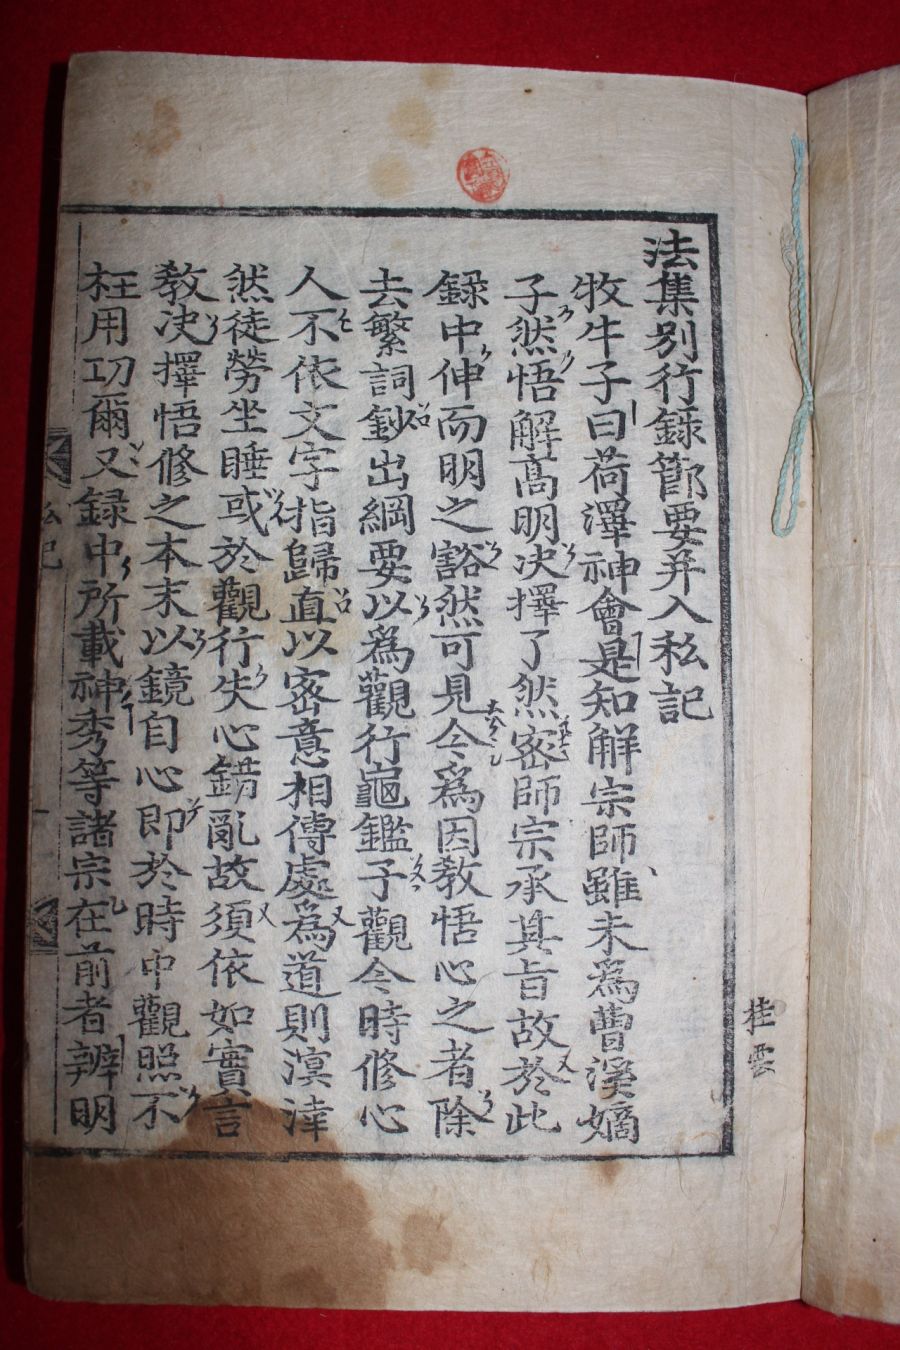 法集別行錄節要幷入私記
牧牛子曰荷澤神會是知解宗師雖未爲曹溪嫡
子然悟解高明决擇了然宻師宗承其旨故於此
錄中伸而明之豁然可見今爲因敎悟心之者除
去繁詞鈔出綱要以爲觀行龜鑑予觀今時修心
人不依文字指歸直以密意相傳處爲道則溟涬
然徒勞坐睡或於觀行失心錯亂故須依如實言
敎决擇悟修之本末以鏡自心即於時中觀照不
枉用功爾又録中所載神秀等諸宗在前者辨明
私記
桂雲